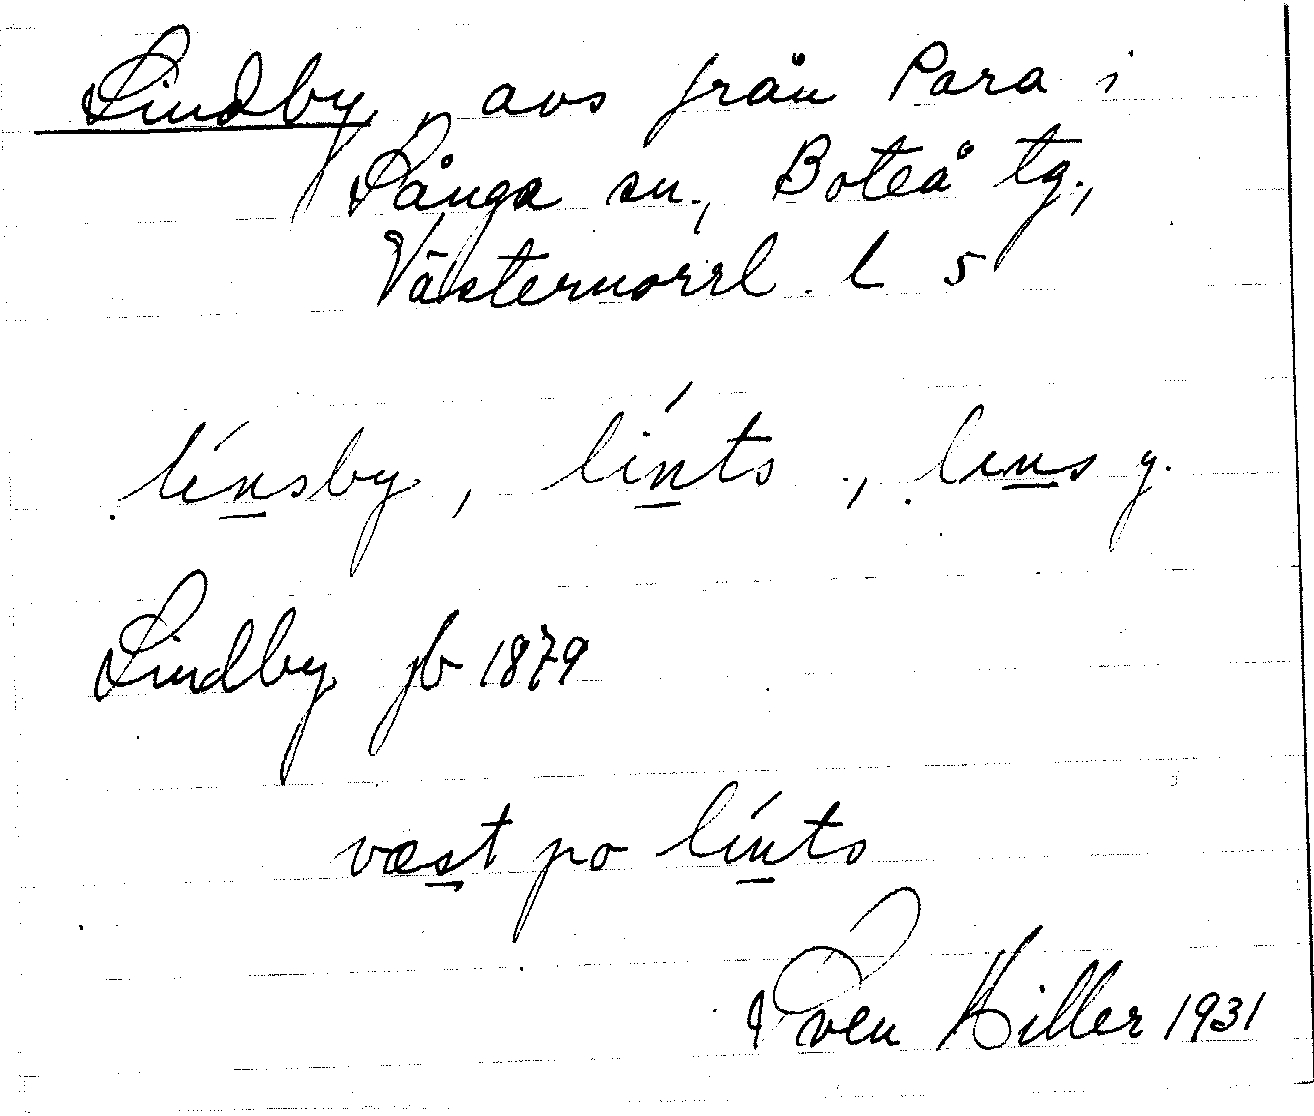 Lindby, avs från Para i
Sånga sn., Boteå tg.,
Västernorrl. l 5
línsby, línts, lins y.
Lindby jb 1879
væst po línts
Sven Hiller 1931